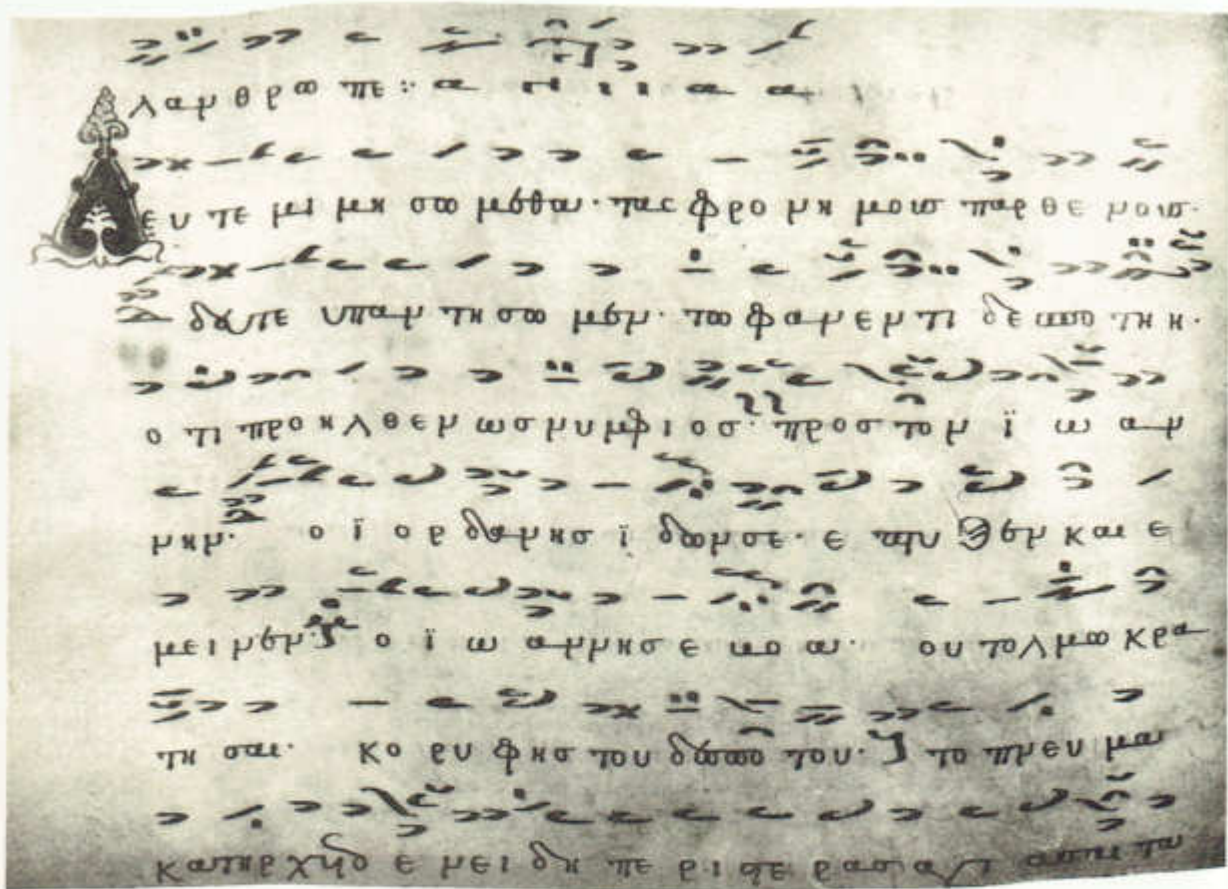 λαν θρω πε: α
Δευ τε μι μη σω μεθα· τας φρο νη μους παρ θε νους·
δευτε υπαν τη σω μεν· τω φα νεν τι δε σπο τη η·
ο τι προ ηλ θεν ως νυ μφι ος· προς τον ϊ ω αν
νην· ο ϊ ορ δα νης ϊ δων σε· ε πτυ ξεν και ε
μει νεν· ο ϊ ω αν νης ε βο α· ου τολ μω κρα
τη σαι· κο ρυ φης του δεσπο του· το πνευ μα
κατηρχε ε νει δη πε ρι στε ρας